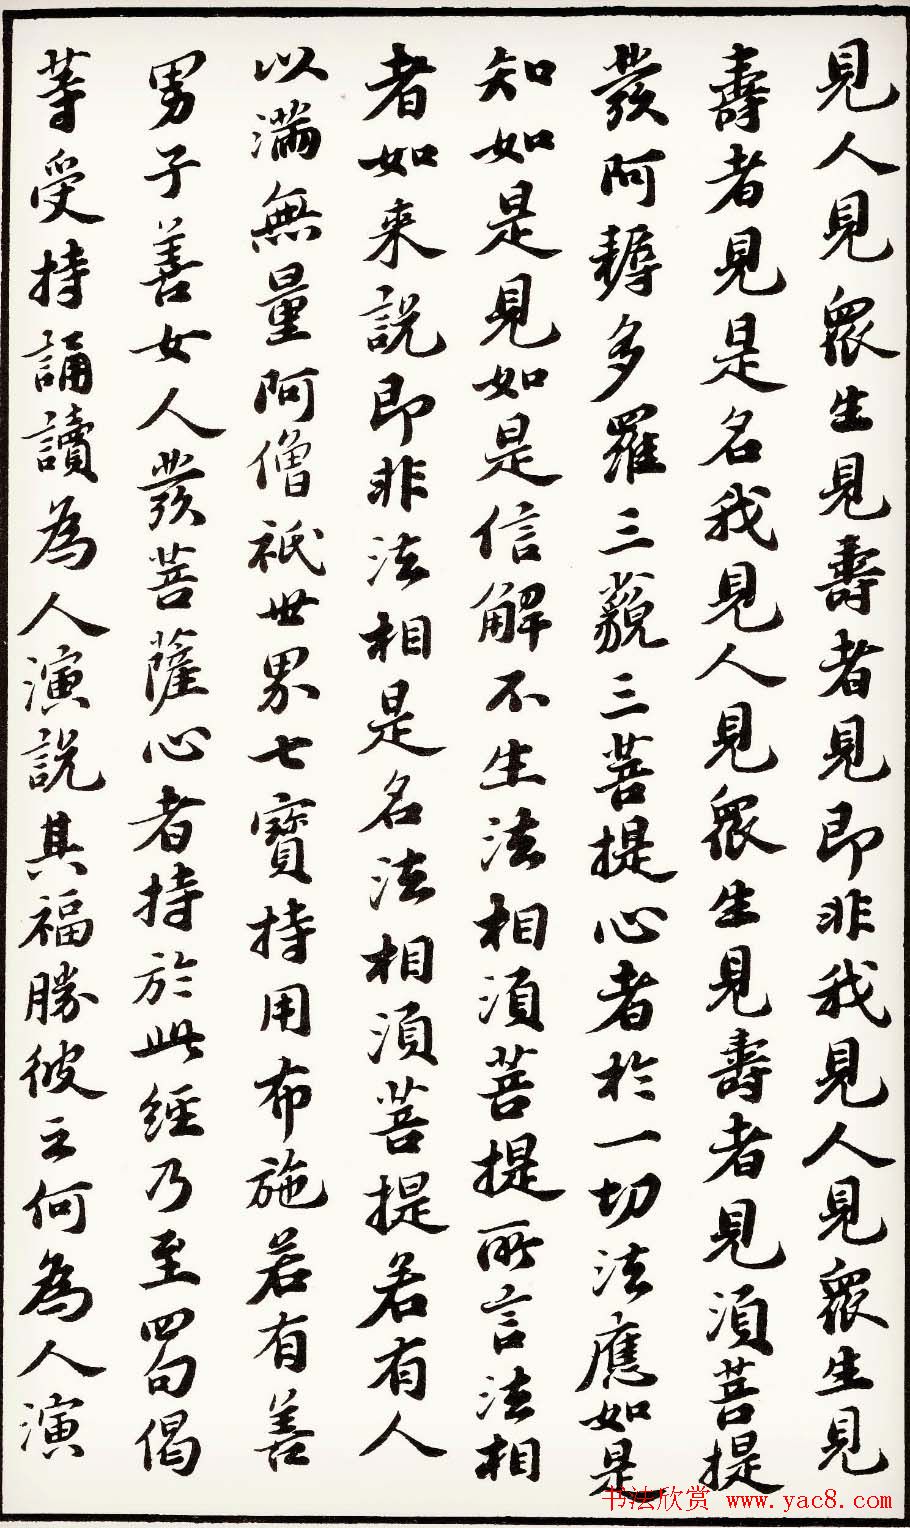 見人見眾生見壽者見即非我見人見眾生見
壽者見是名我見人見眾生見壽者見須菩提
發阿耨多羅三藐三菩提心者於一切法應如是
知如是見如是信解不生法相須菩提所言法相
者如来說即非法相是名法相須菩提若有人
以滿無量阿僧祇世界七寶持用布施若有善
男子善女人發菩薩心者持於此經乃至四句偈
等受持誦讀為人演説其福勝彼云何為人演
书法欣赏 www.yac8.com